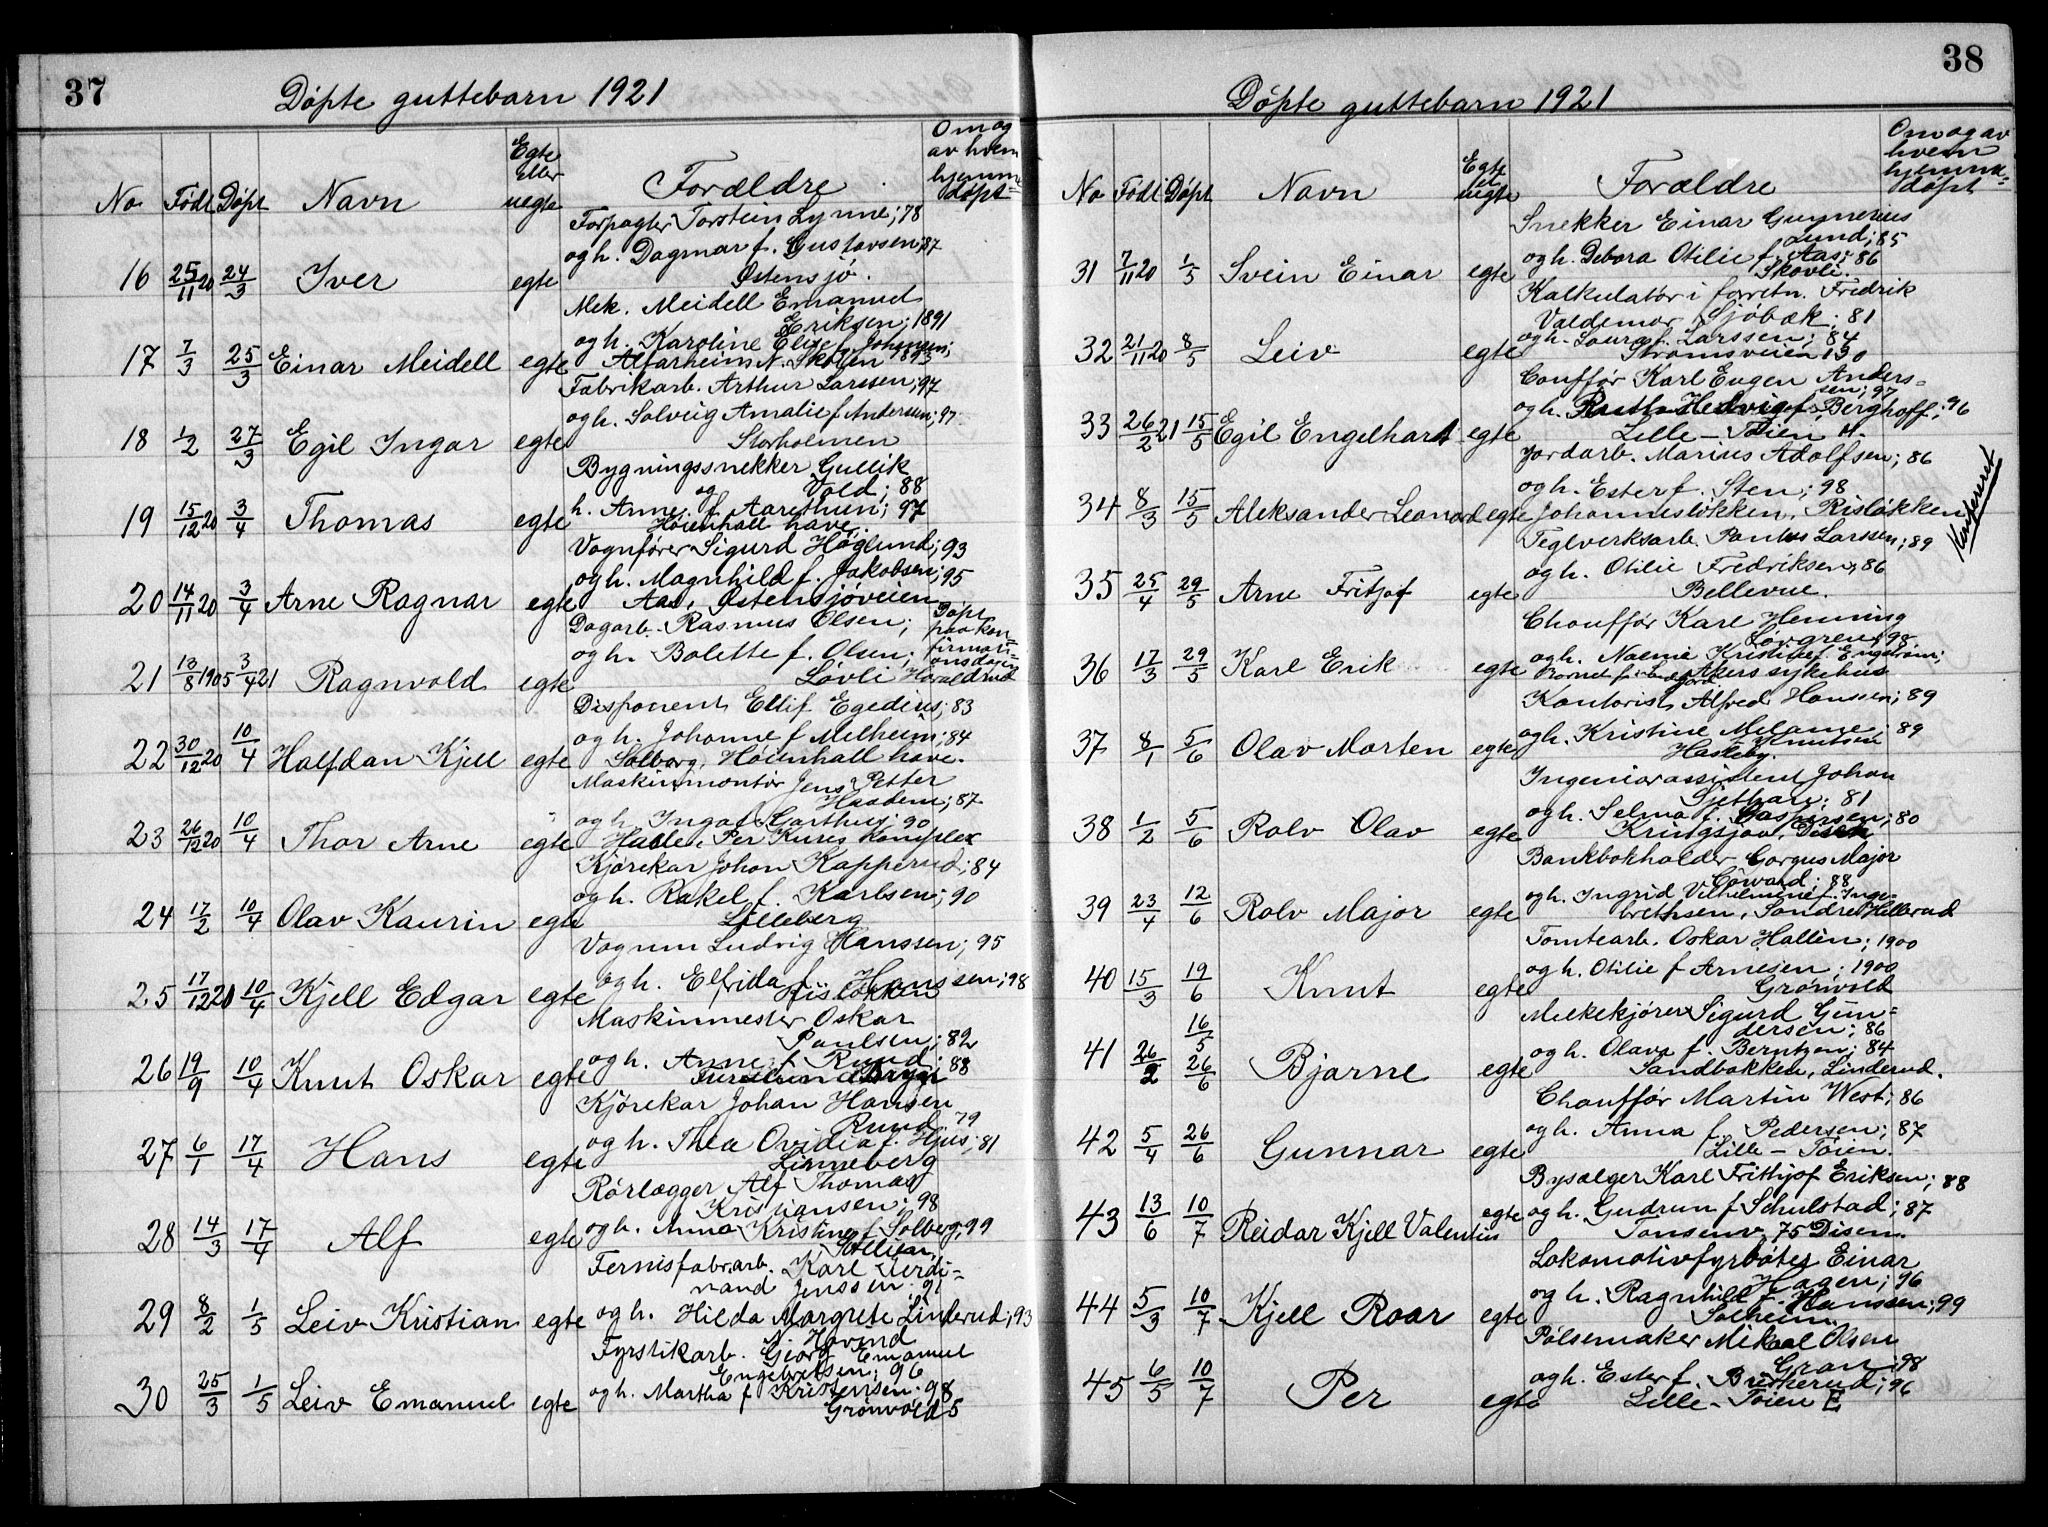 37
Døpte guttebarn 1921
No Født Døpt Navn Egte eller uegte Forældre Om og av hvem hjemme=døpt
16 25/11 20 24/3 Iver egte
Forpagter Torstein Lynne; 78
og h. Dagmar f. Gustavsen; 87
Østensjø.
17 7/3 25/3 Einar Meidell egte
Mek. Meidell Emanuel
Eriksen; 1891
og h. Karoline Elise f. Johansen;
Alfarheim N. Skøien 1893
18 1/2 27/3 Egil Ingar egte
Fabrikarb. Arthur Larssen; 97
og h. Solveig Amalie f Andersen; 97
Storholmen
19 15/12 20 3/4 Thomas egte
Bygningssnekker Gullik
og Vold; 88
h. Anne f. Aarethun; 97
Høienhall have.
20 14/11 20 3/4 Arne Ragnar egte
Vognfører Sigurd Høglund; 93
og h. Magnhild f. Jakobsen; 95
Aas, Østensjøveien
21 13/8 1905 3/4 21 Ragnvald egte
Dagarb. Rasmus Olsen;
og h. Bolette f. Olsen;
Løvli Haraldrud
Døpt paa kon=firmati=onsdagen
22 30/12 20 10/4 Halfdan Kjell egte
Disponent Eilif Egedius; 83
og h. Johanne f Melheim; 84
Solborg, Høienhall have.
23 26/12 20 10/4 Thor Arne egte
Maskinmontør Jens Petter
Haadem; 87
og h. Inga f. Garthus; 90
Halle, Per Kures Komplex
24 17/2 10/4 Olav Kaurin egte
Kjørekar Johan Kapperud; 84
og h. Rakel f. Karlsen; 90
Lilleberg
25 17/12 20 10/4 Kjell Edgar egte
Vognm Ludvig Hanssen; 95
og h. Elfrida f. Hanssen; 98
Risløkken
26 19/9 10/4 Knut Oskar egte
Maskinmester Oskar
Paulsen; 82
og h. Anne f Rund; 88
27 6/1 17/4 Hans egte
Kjørekar Johan Hansen
Rund 79
og h. Thea Ovidia f. Hjus; 81
Linneberg
28 14/3 17/4 Alf egte
Rørlægger Alf Thomas
Kristiansen; 98
og h. Anna Kristine f Solberg; 99
29 8/2 1/5 Leiv Kristian egte
Fernisfabr.arb. Karl Ferdi=
nand Jenssen 91
og h. Hilda Margrete Linderud; 93
N. Hovind
30 25/3 1/5 Leiv Emanuel egte
Fyrstikarb. Georg Emanuel
Engebretsen; 96
og h. Martha f Kristensen; 98
Grønvold 5
38
Døpte guttebarn 1921
No Født Døpt Navn Egte el uegte Forældre Om og av hvem hjemme=døpt
31 7/11 20 1/5 Svein Einar egte
Snekker Einar Guynerius
Lund; 85
og h. Debora Otilie f. Aas; 86
Skovli.
32 21/11 20 8/5 Leiv egte
Kalkulatør i forretn. Fredrik
Valdemar Sjøbæk; 81
og h. Laura f. Larssen; 84
Strømsveien 130
33 26/2 21 15/5 Egil Engelhart egte
Couffør Karl Eugen Anders=
sen; 97
og h. Ruth Hedvig f. Berghoff; 96
Lille-Tøien H.
34 8/3 15/5 Aleksander Leonard egte
Jordarb. Marius Adolfsen; 86
og h. Ester f. Sten; 98
Johannesløkken, Risløkken
35 25/4 29/5 Arne Fritjof egte
Teglverksarb. Paulus Larssen; 89
og h. Otilie Fredriksen; 86
Bellevue.
Konfereret
36 17/3 29/5 Karl Erik egte
Chouffør Karl Henning
Løvgren; 98
og h. Naemi Kristine f. Engstrøm;
Akers sykehus
37 8/1 5/6 Olav Morten egte
Kontorist Alfred Hansen; 89
og h. Kristine Melanie 89
Knutsen
Hasleby.
38 1/2 5/6 Rolv Olav egte
Ingeniørassistent Johan
Sjethare; 81
og h. Selma f. Caspersen; 80
Kringsjaa, Disen
39 23/4 12/6 Rolv Major egte
Bankbokholder Gorgus Major
Coward; 88
og h. Ingrid Vilhelmine f. Inge=
bretsen, Søndre Hellerud
40 15/3 19/6 Knut egte
Tomtearb. Oskar Hallèn; 1900
og h. Otilie f Arnesen; 1900
Grønvold
41 26/2 16/5 26/6 Bjarne egte
Melkekjører Sigurd Gun=
dersen; 86
og h. Olava f. Berntzen; 84
Sandbakken, Linderud.
42 5/4 26/6 Gunnar egte
Chouffør Martin West; 86
og h. Anna f. Pedersen; 87
Lille-Tøien.
43 13/6 10/7 Reidar Kjell Valentin egte
Bysælger Karl Frithjof Eriksen; 88
og h. Gudrun f Schulstad; 87
Tonsenv. 75 Disen.
44 5/3 10/7 Kjell Roar egte
Lokomotivfyrbøter Einar
Hagen; 96
og h. Ragnhild f. Hanssen; 99
Solheim.
45 6/5 10/7 Per egte
Pølsemaker Mikael Olsen
Gran; 98
og h. Ester f. Buskerud; 96
Lille-Tøien E